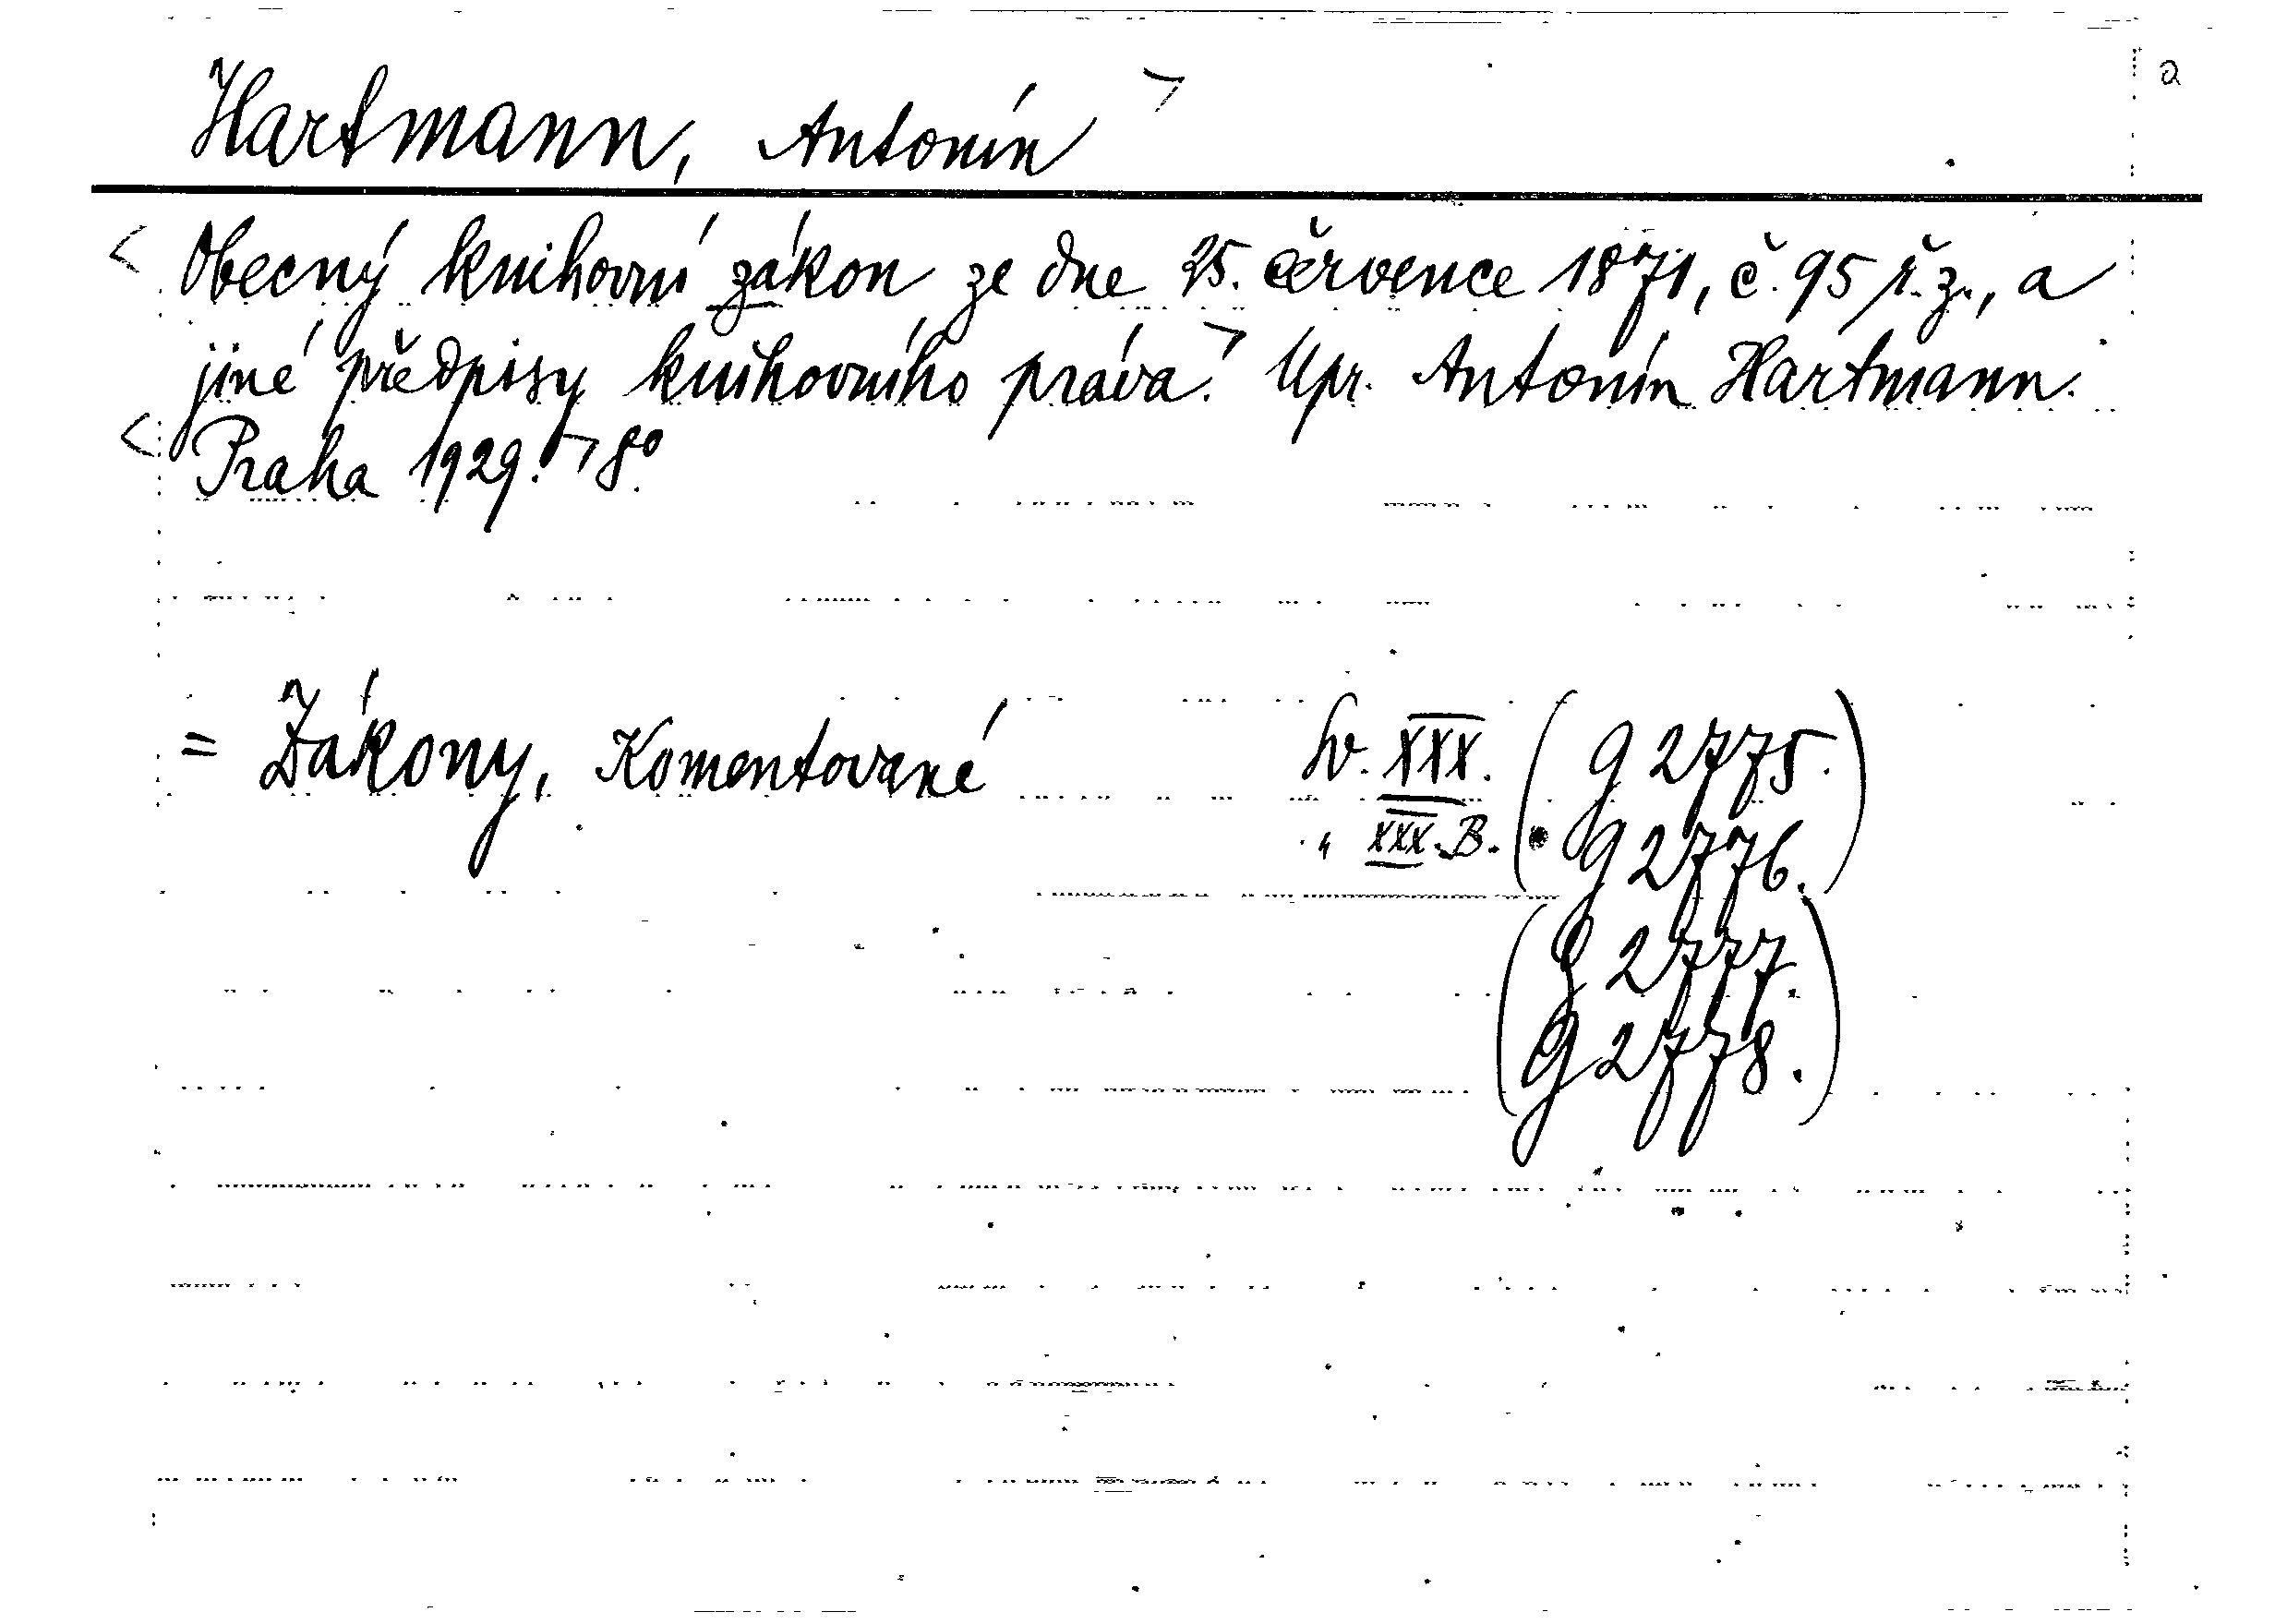 Hartmann, Antonín
a
Obecný knihovní zákon ze dne 25. července 1871, č. 95 ř. z., a
jiné předpisy knihovního práva. Upr. Antonín Hartmann.
Praha 1929. 8°.
= Zákony, Komentované
Sv. XXX. (g 2775.)
„ XXX. B. (g 2776.)
(g 2777.
g 2778.)